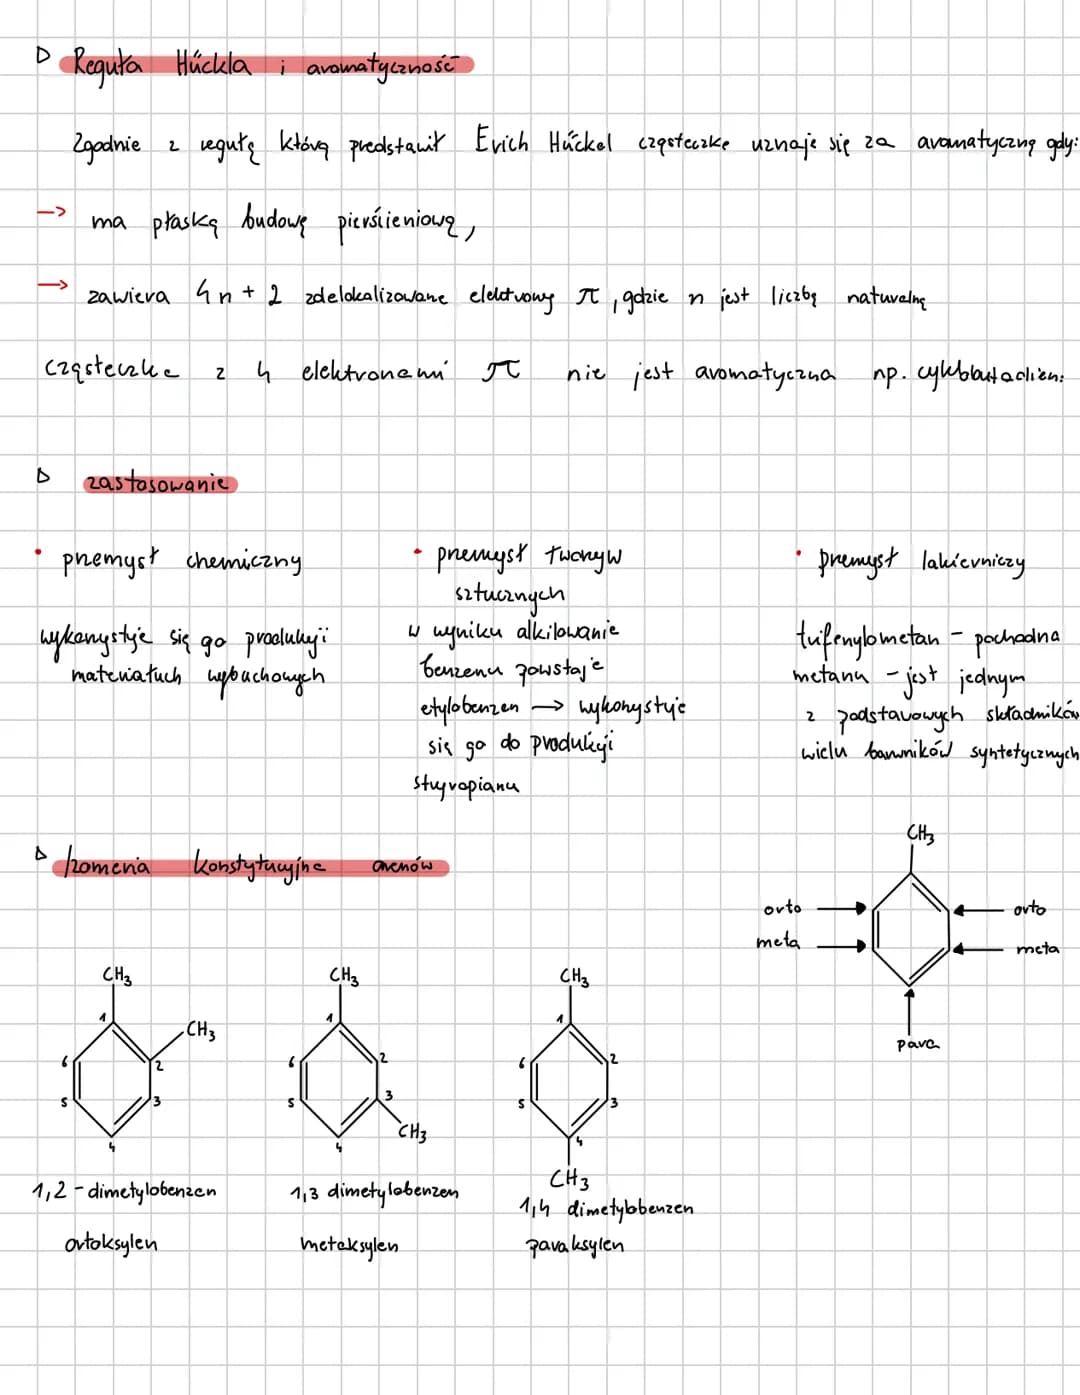 Reguła Hückla i aromatyczność
Zgodnie z regułą którą predstawił Erich Hückel cząsteczkę uznaje się za aromatyczną gdy:
→ ma płaską budowę pierścieniową,
→ zawiera 4n + 2 zdelokalizowane elektrony π, gdzie n jest liczbą naturalną
cząsteczka z 4 elektronami π nie jest aromatyczna np. cyklobutadien:
zastosowanie
• przemysł chemiczny
wykorzystyje się go produkcji
materiałuch wybuchowych
• przemysł tworzyw
sztucznych
w wyniku alkilowanie
benzenu powstaje
etylobenzen → wykorzystyje
się go do produkcji
styropianu
• przemysł lakierniczy
trifenylometan - pochodna
metanu - jest jednym
z podstawowych składników
wielu barwników syntetycznych
Izomeria konstytucyjna arenów
CH3
orto
orto
meta
meta
para
CH3
CH3
1
2
3
4
5
6
1,2 - dimetylobenzen
ortoksylen
CH3
CH3
1
2
3
4
5
6
1,3 dimetylobenzen
metaksylen
CH3
CH3
1
2
3
4
5
6
1,4 dimetylobenzen
paraksylen